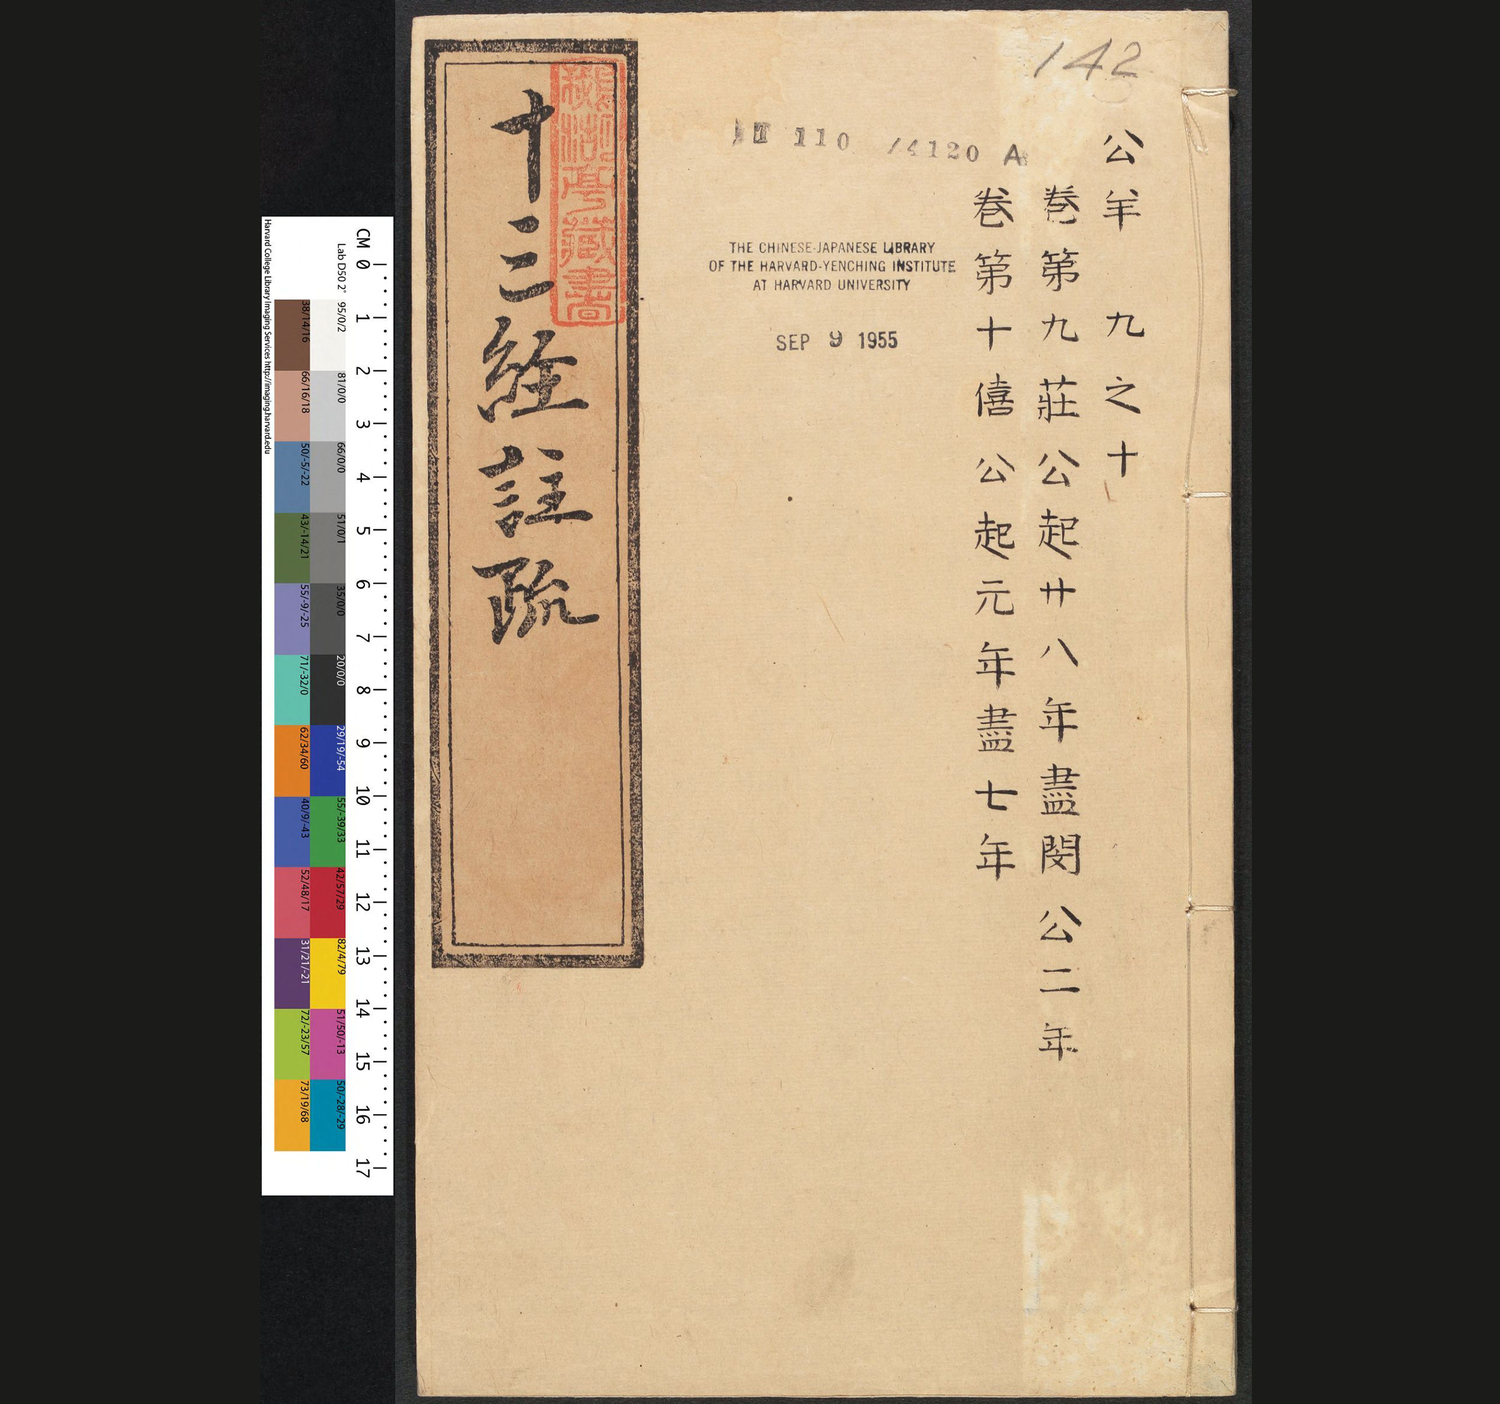 142
公羊 九之十
卷第九莊公起廿八年盡閔公二年
卷第十僖公起元年盡七年
110 /4120 A
THE CHINESE-JAPANESE LIBRARY
OF THE HARVARD-YENCHING INSTITUTE
AT HARVARD UNIVERSITY
SEP 9 1955
十三経註疏
亭藏書
CM 0 1 2 3 4 5 6 7 8 9 10 11 12 13 14 15 16 17
Lab D50 2° 95/0/2 81/0/0 66/0/0 51/0/1 35/0/0 20/0/0 29/19/-54 55/-39/33 42/57/29 82/4/79 51/50/-13 50/-28/-29
38/14/16 66/16/18 50/-5/-22 43/-14/21 55/-9/-25 71/-32/0 62/34/60 40/9/-43 52/48/17 31/21/-21 72/-23/57 73/19/68
Harvard College Library Imaging Services http://imaging.harvard.edu